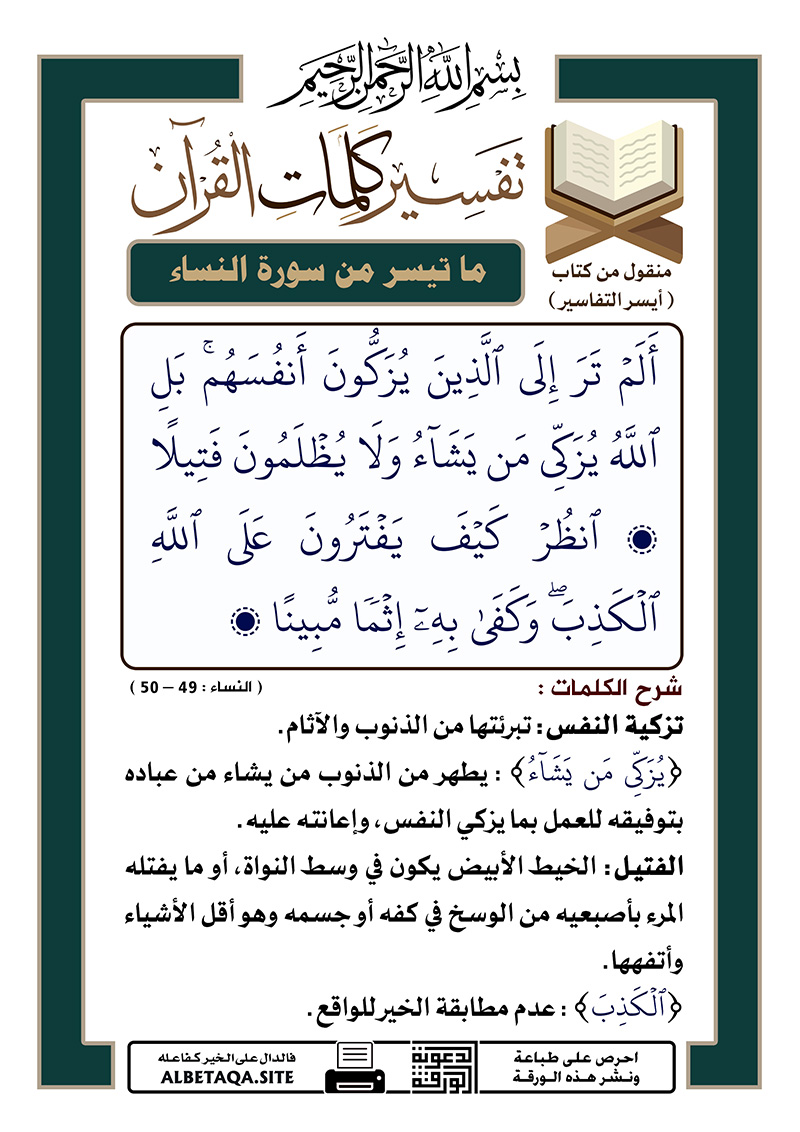 بِسْمِ اللَّهِ الرَّحْمَٰنِ الرَّحِيمِ
تَفْسِير كَلِمَاتِ الْقُرْآن
منقول من كتاب
( أيسر التفاسير )
ما تيسر من سورة النساء
أَلَمۡ تَرَ إِلَى ٱلَّذِينَ يُزَكُّونَ أَنفُسَهُمۚ بَلِ
ٱللَّهُ يُزَكِّي مَن يَشَآءُ وَلَا يُظۡلَمُونَ فَتِيلًا
۝ ٱنظُرۡ كَيۡفَ يَفۡتَرُونَ عَلَى ٱللَّهِ
ٱلۡكَذِبَۖ وَكَفَىٰ بِهِۦٓ إِثۡمٗا مُّبِينًا ۝
شرح الكلمات :
( النساء : 49 – 50 )
تزكية النفس : تبرئتها من الذنوب والآثام.
﴿يُزَكِّي مَن يَشَآءُ﴾ : يطهر من الذنوب من يشاء من عباده
بتوفيقه للعمل بما يزكي النفس، وإعانته عليه.
الفتيل : الخيط الأبيض يكون في وسط النواة، أو ما يفتله
المرء بأصبعيه من الوسخ في كفه أو جسمه وهو أقل الأشياء
وأتفهها.
﴿ٱلۡكَذِبَ﴾ : عدم مطابقة الخبر للواقع.
احرص على طباعة
ونشر هذه الورقة
الورقة الدعوية
فالدال على الخير كفاعله
ALBETAQA.SITE